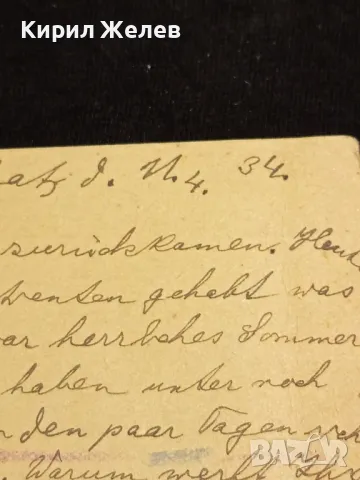 Кирил Желев
atz d. 11.4. 34.
zurückkamen. Heu
gehabt was
ar herrliches Sommer
haben unter noch
n den paar Tagen
Warum werft
BAZAR